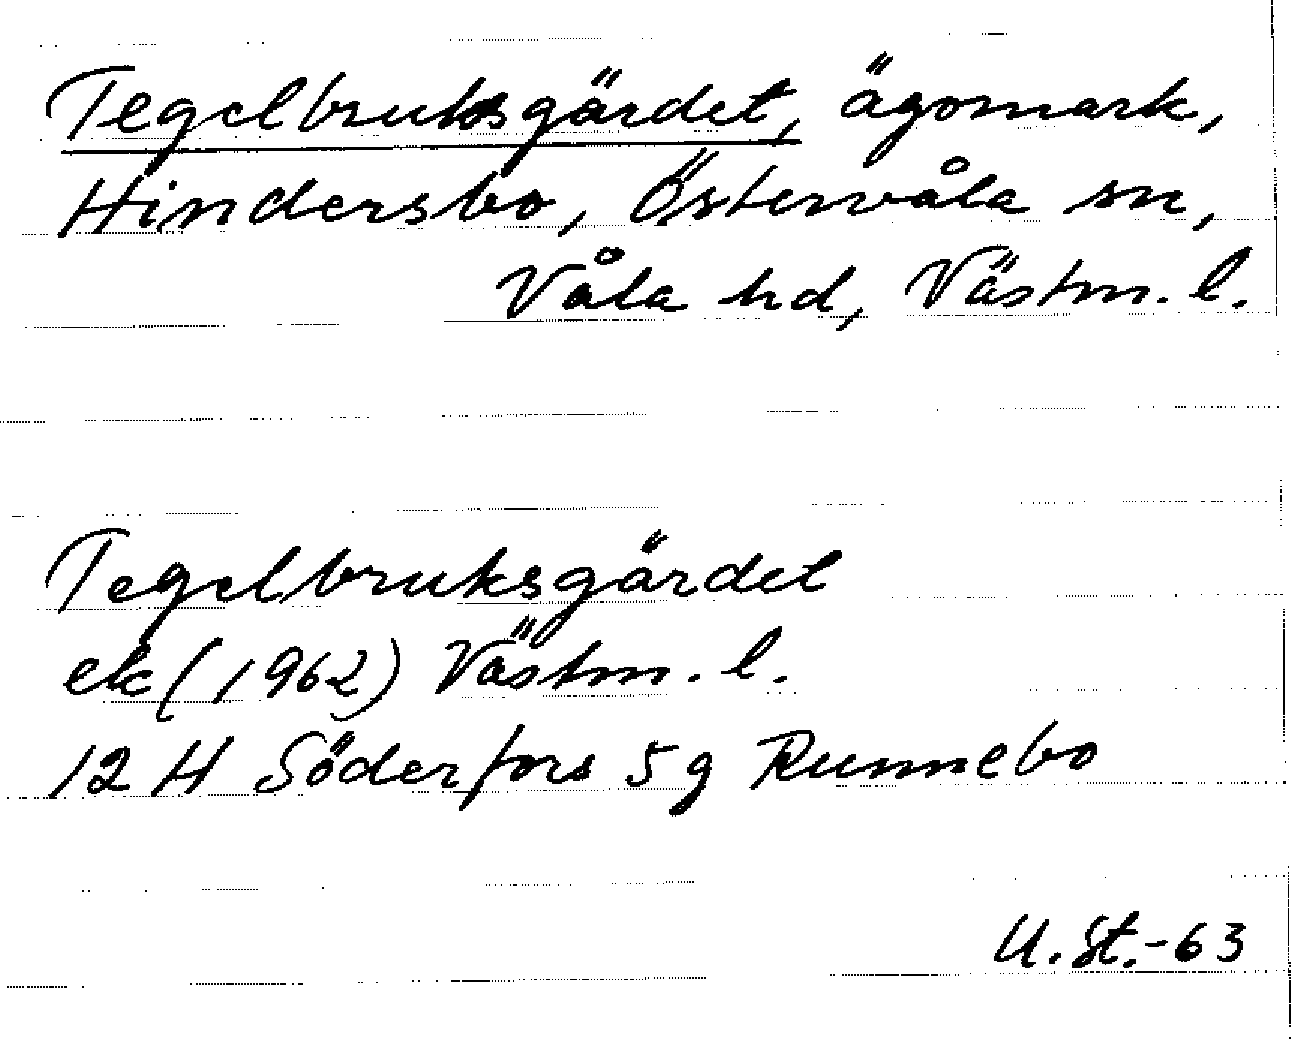 Tegelbruksgärdet, ägomark,
Hindersbo, Östervåla sn,
Våla hd, Västm. l.
Tegelbruksgärdet
ek (1962) Västm. l.
12 H Söderfors 5 g Runnebo
U. St. -63